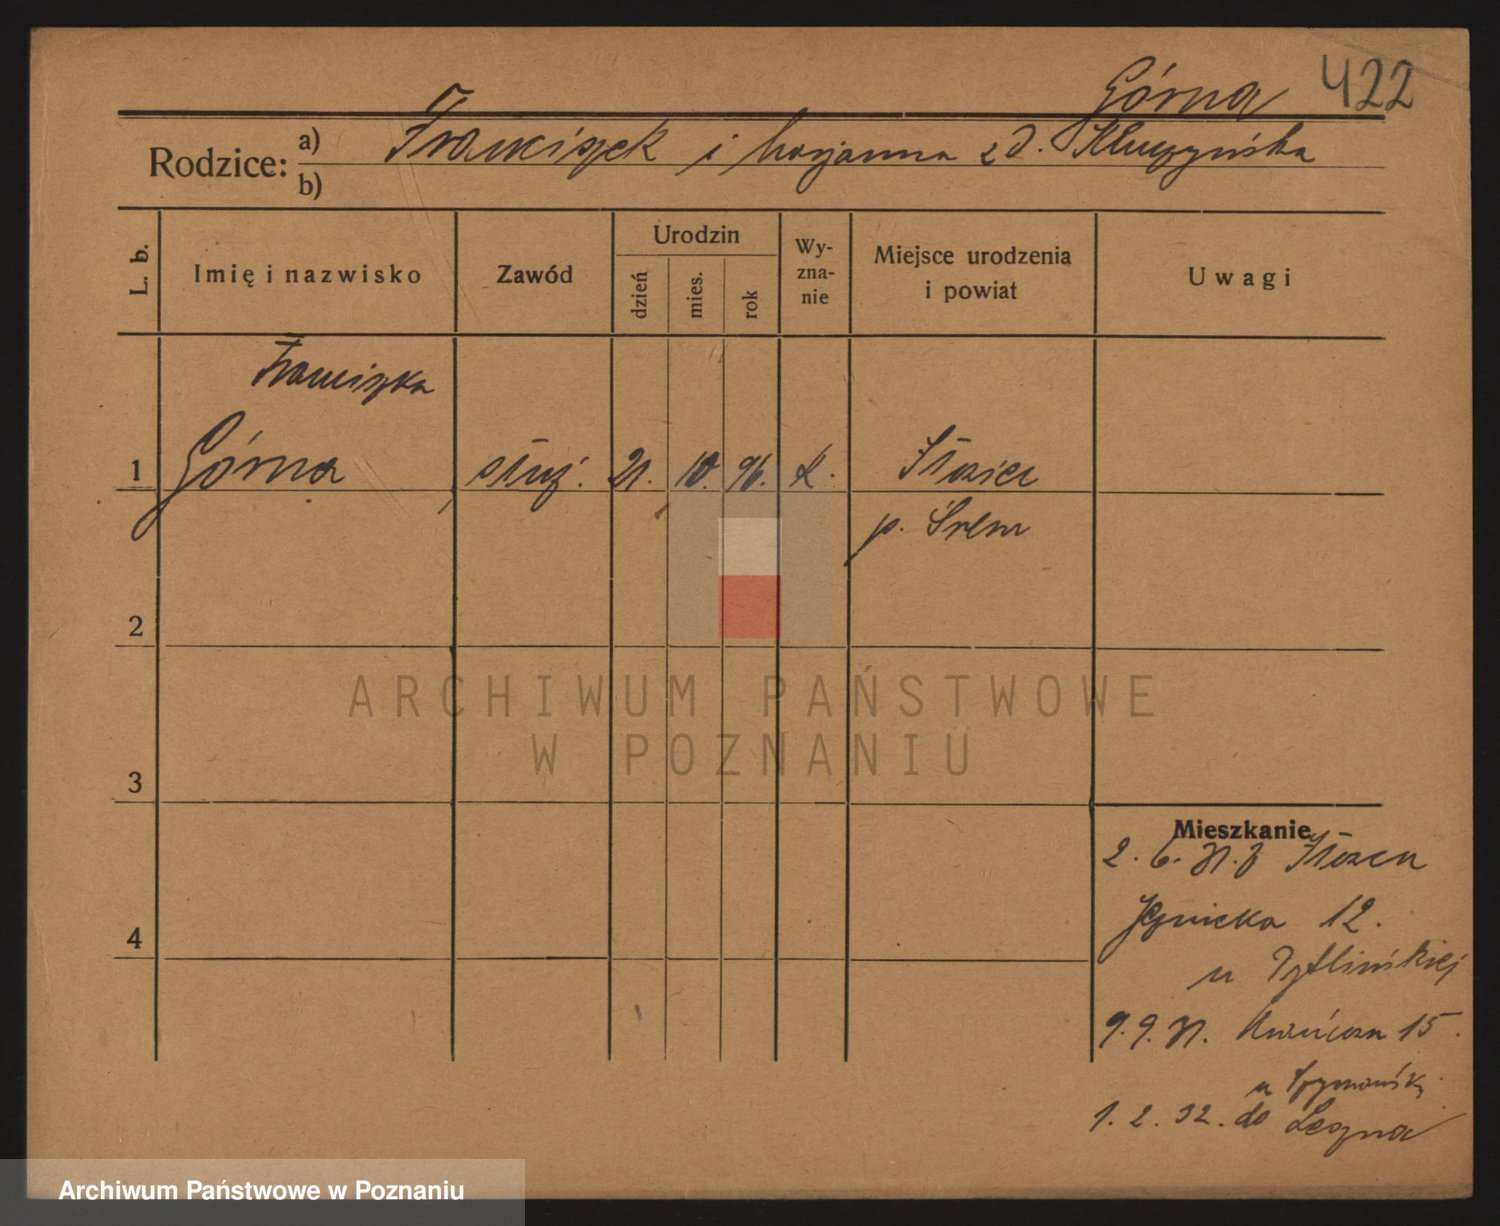 Górna 422
Rodzice: a) Franciszek i Marjanna z d. Kluczyńska
b)
L. b. Imię i nazwisko Zawód Urodzin dzień mies. rok Wy-zna-nie Miejsce urodzenia i powiat Uwagi
Franciszka
1 Górna służ. 21. 10. 96. k.
p. Śrem
2
ARCHIWUM PAŃSTWOWE
W POZNANIU
3
Mieszkanie
2. 6. 31. z
4 12.
u
9. 9. 31. 15.
u
1. 2. 32. do Leszna
Archiwum Państwowe w Poznaniu